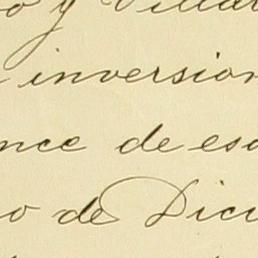 o y Villar
inversion
nce de esa
o de Dici